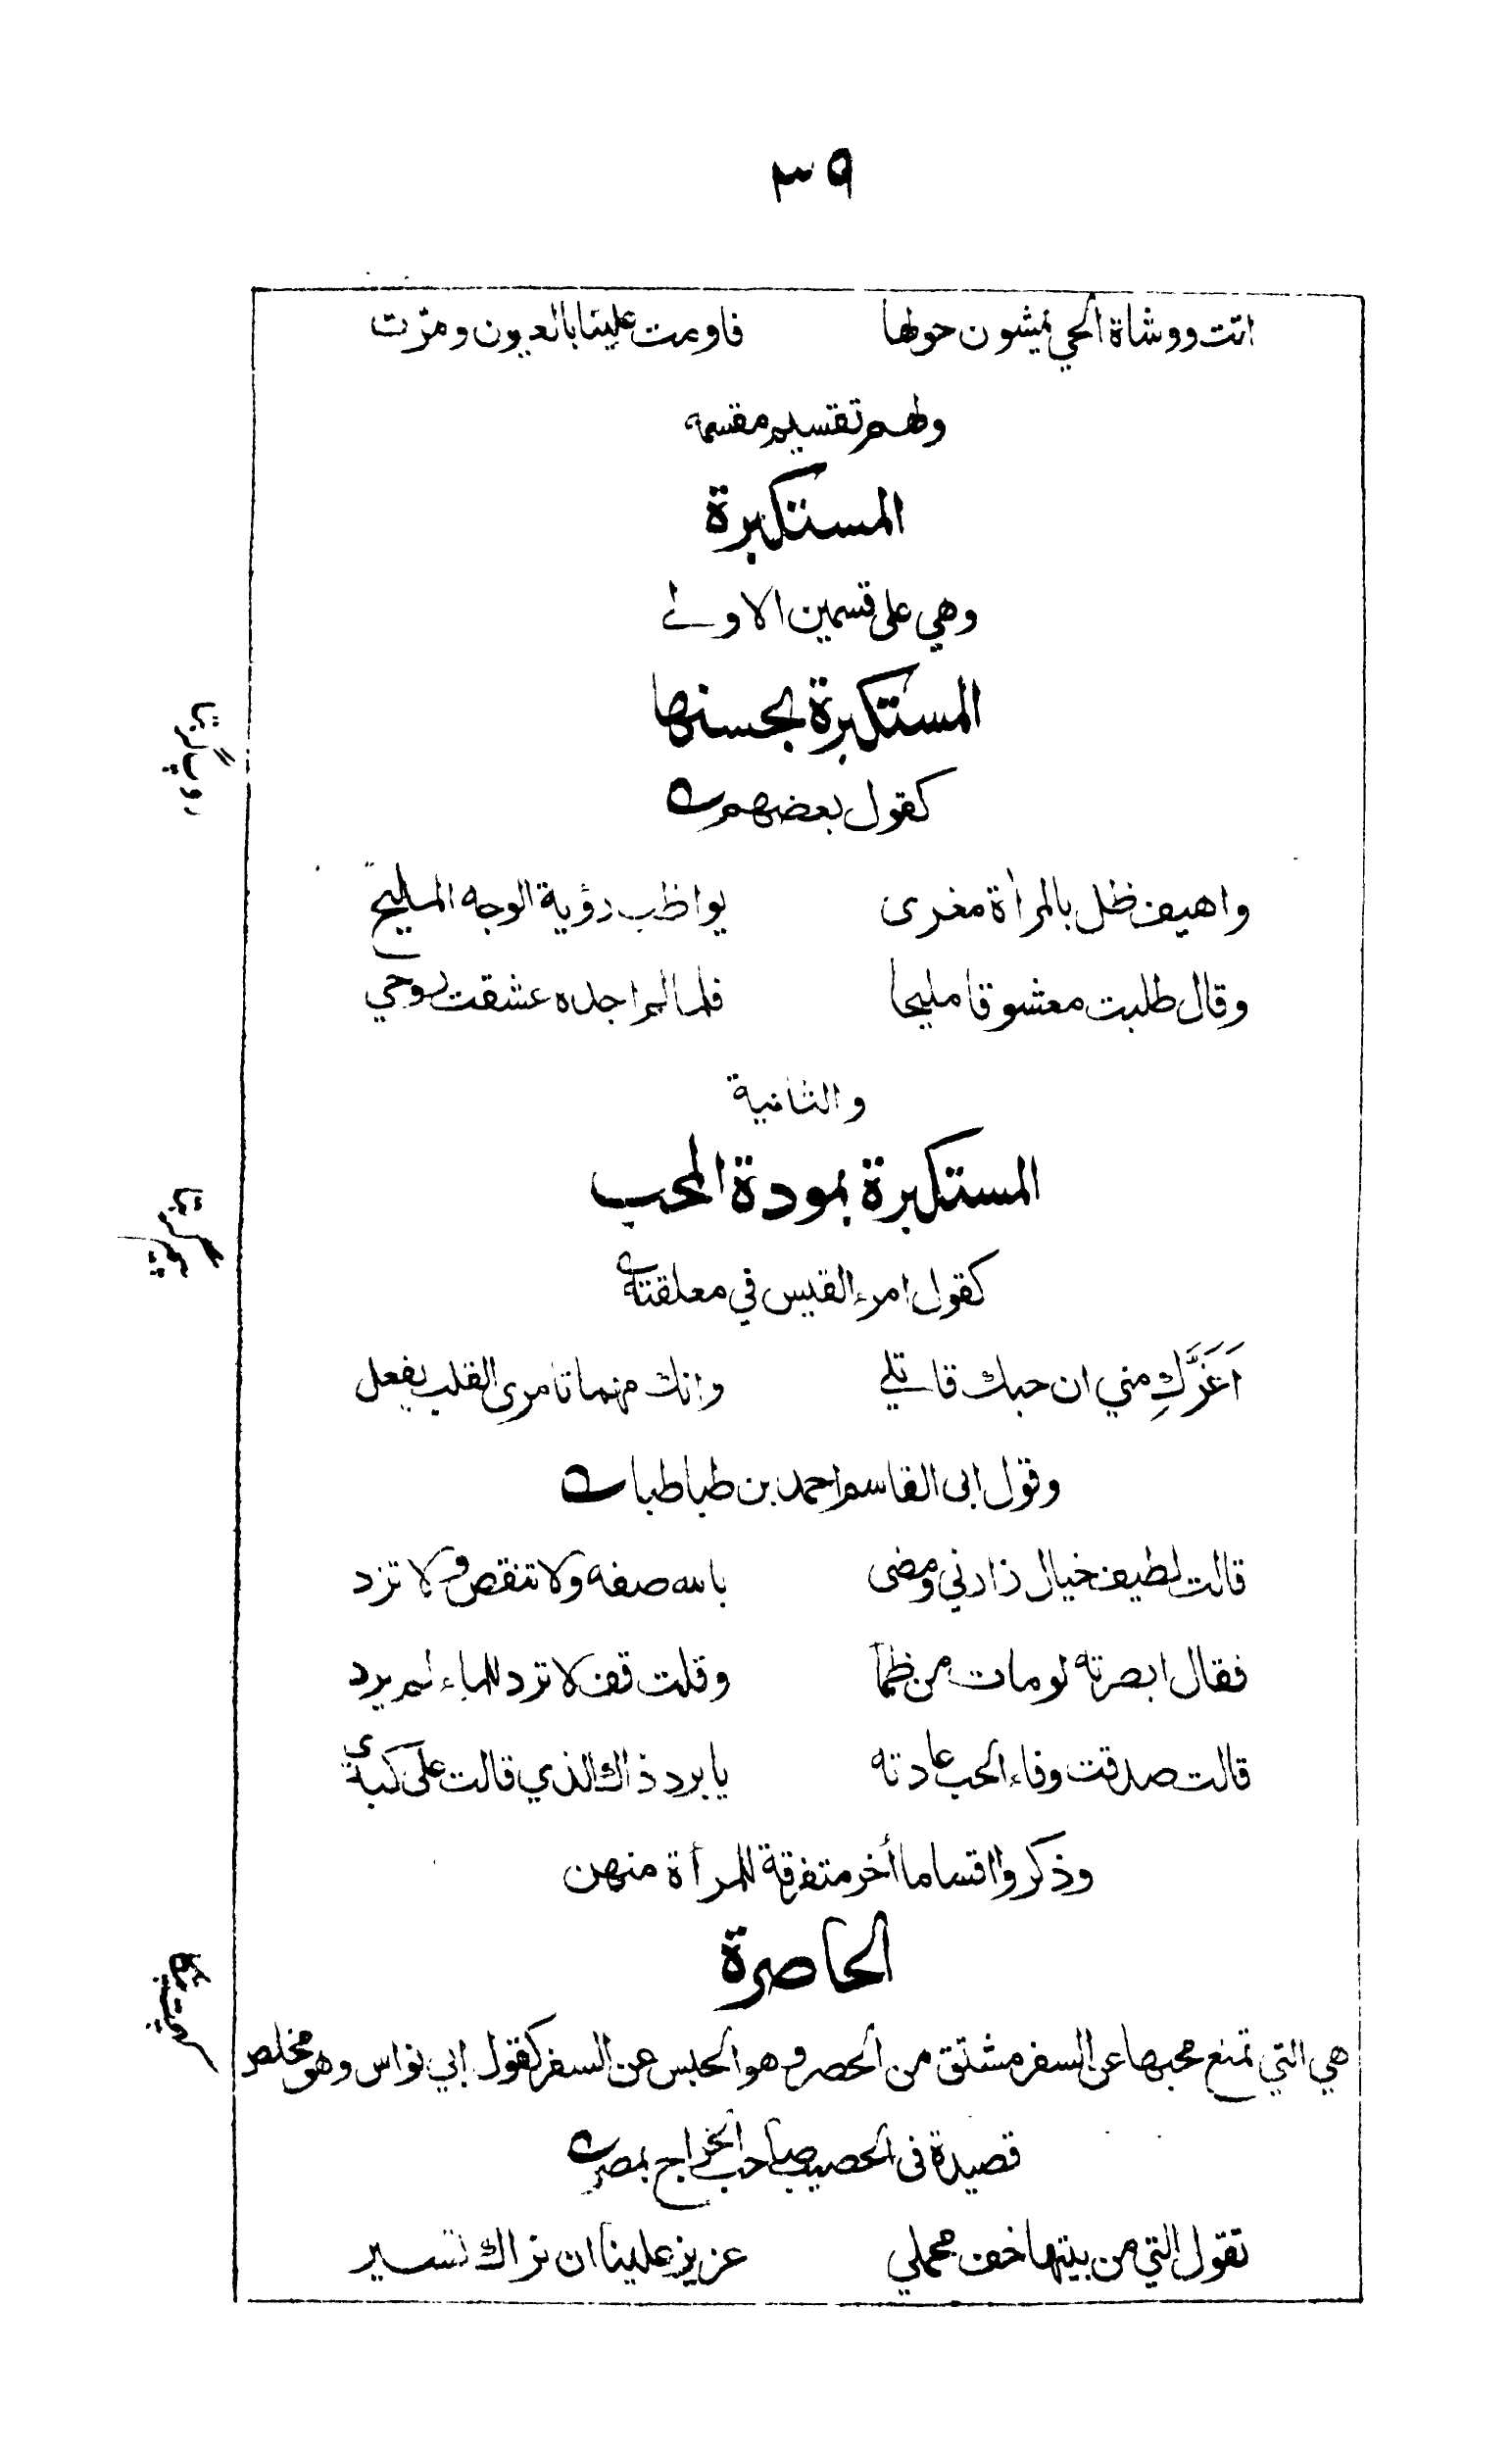 ٣٩
اتت ووشاة الحي يمشون حولها فاومت علينا بالعيون ومرّت
ولهم تقسيم مقسمه
المستكبرة
وهي على قسمين الاولى
المستكبرة بحسنها
كقول بعضهم
واهيف ظل بالمرأة مغرى يواظب رؤية الوجه المليح
وقال طلبت معشوقا مليحا فلما لم اجده عشقت روحي
والثانية
المستكبرة بمودة المحب
كقول امرء القيس في معلقته
اَغَرَّكِ مني ان حبك قاتلي وانك مهما تأمرى القلب يفعل
وقول ابى القاسم احمد بن طباطبا
قالت لطيف خيال زارني ومضى بالله صفه ولا تنقص ولا تزد
فقال ابصرته لو مات من ظمأ وقلت قف لا ترد للماء لم يرد
قالت صدقت وفاء الحب عادته يا برد ذاك الذي قالت على كبدي
وذكروا اقساما أخر متفرقة للمرأة منهن
الحاصرة
هي التي تمنع محبها عن السفر مشتق من الحصر وهو الحبس عن السفر كقول ابي نواس وهو مخلص
قصيدة فى الخصيب صاحب الخراج بمصر
تقول التي من بيتها خف محملي عزيز علينا ان نراك تسير